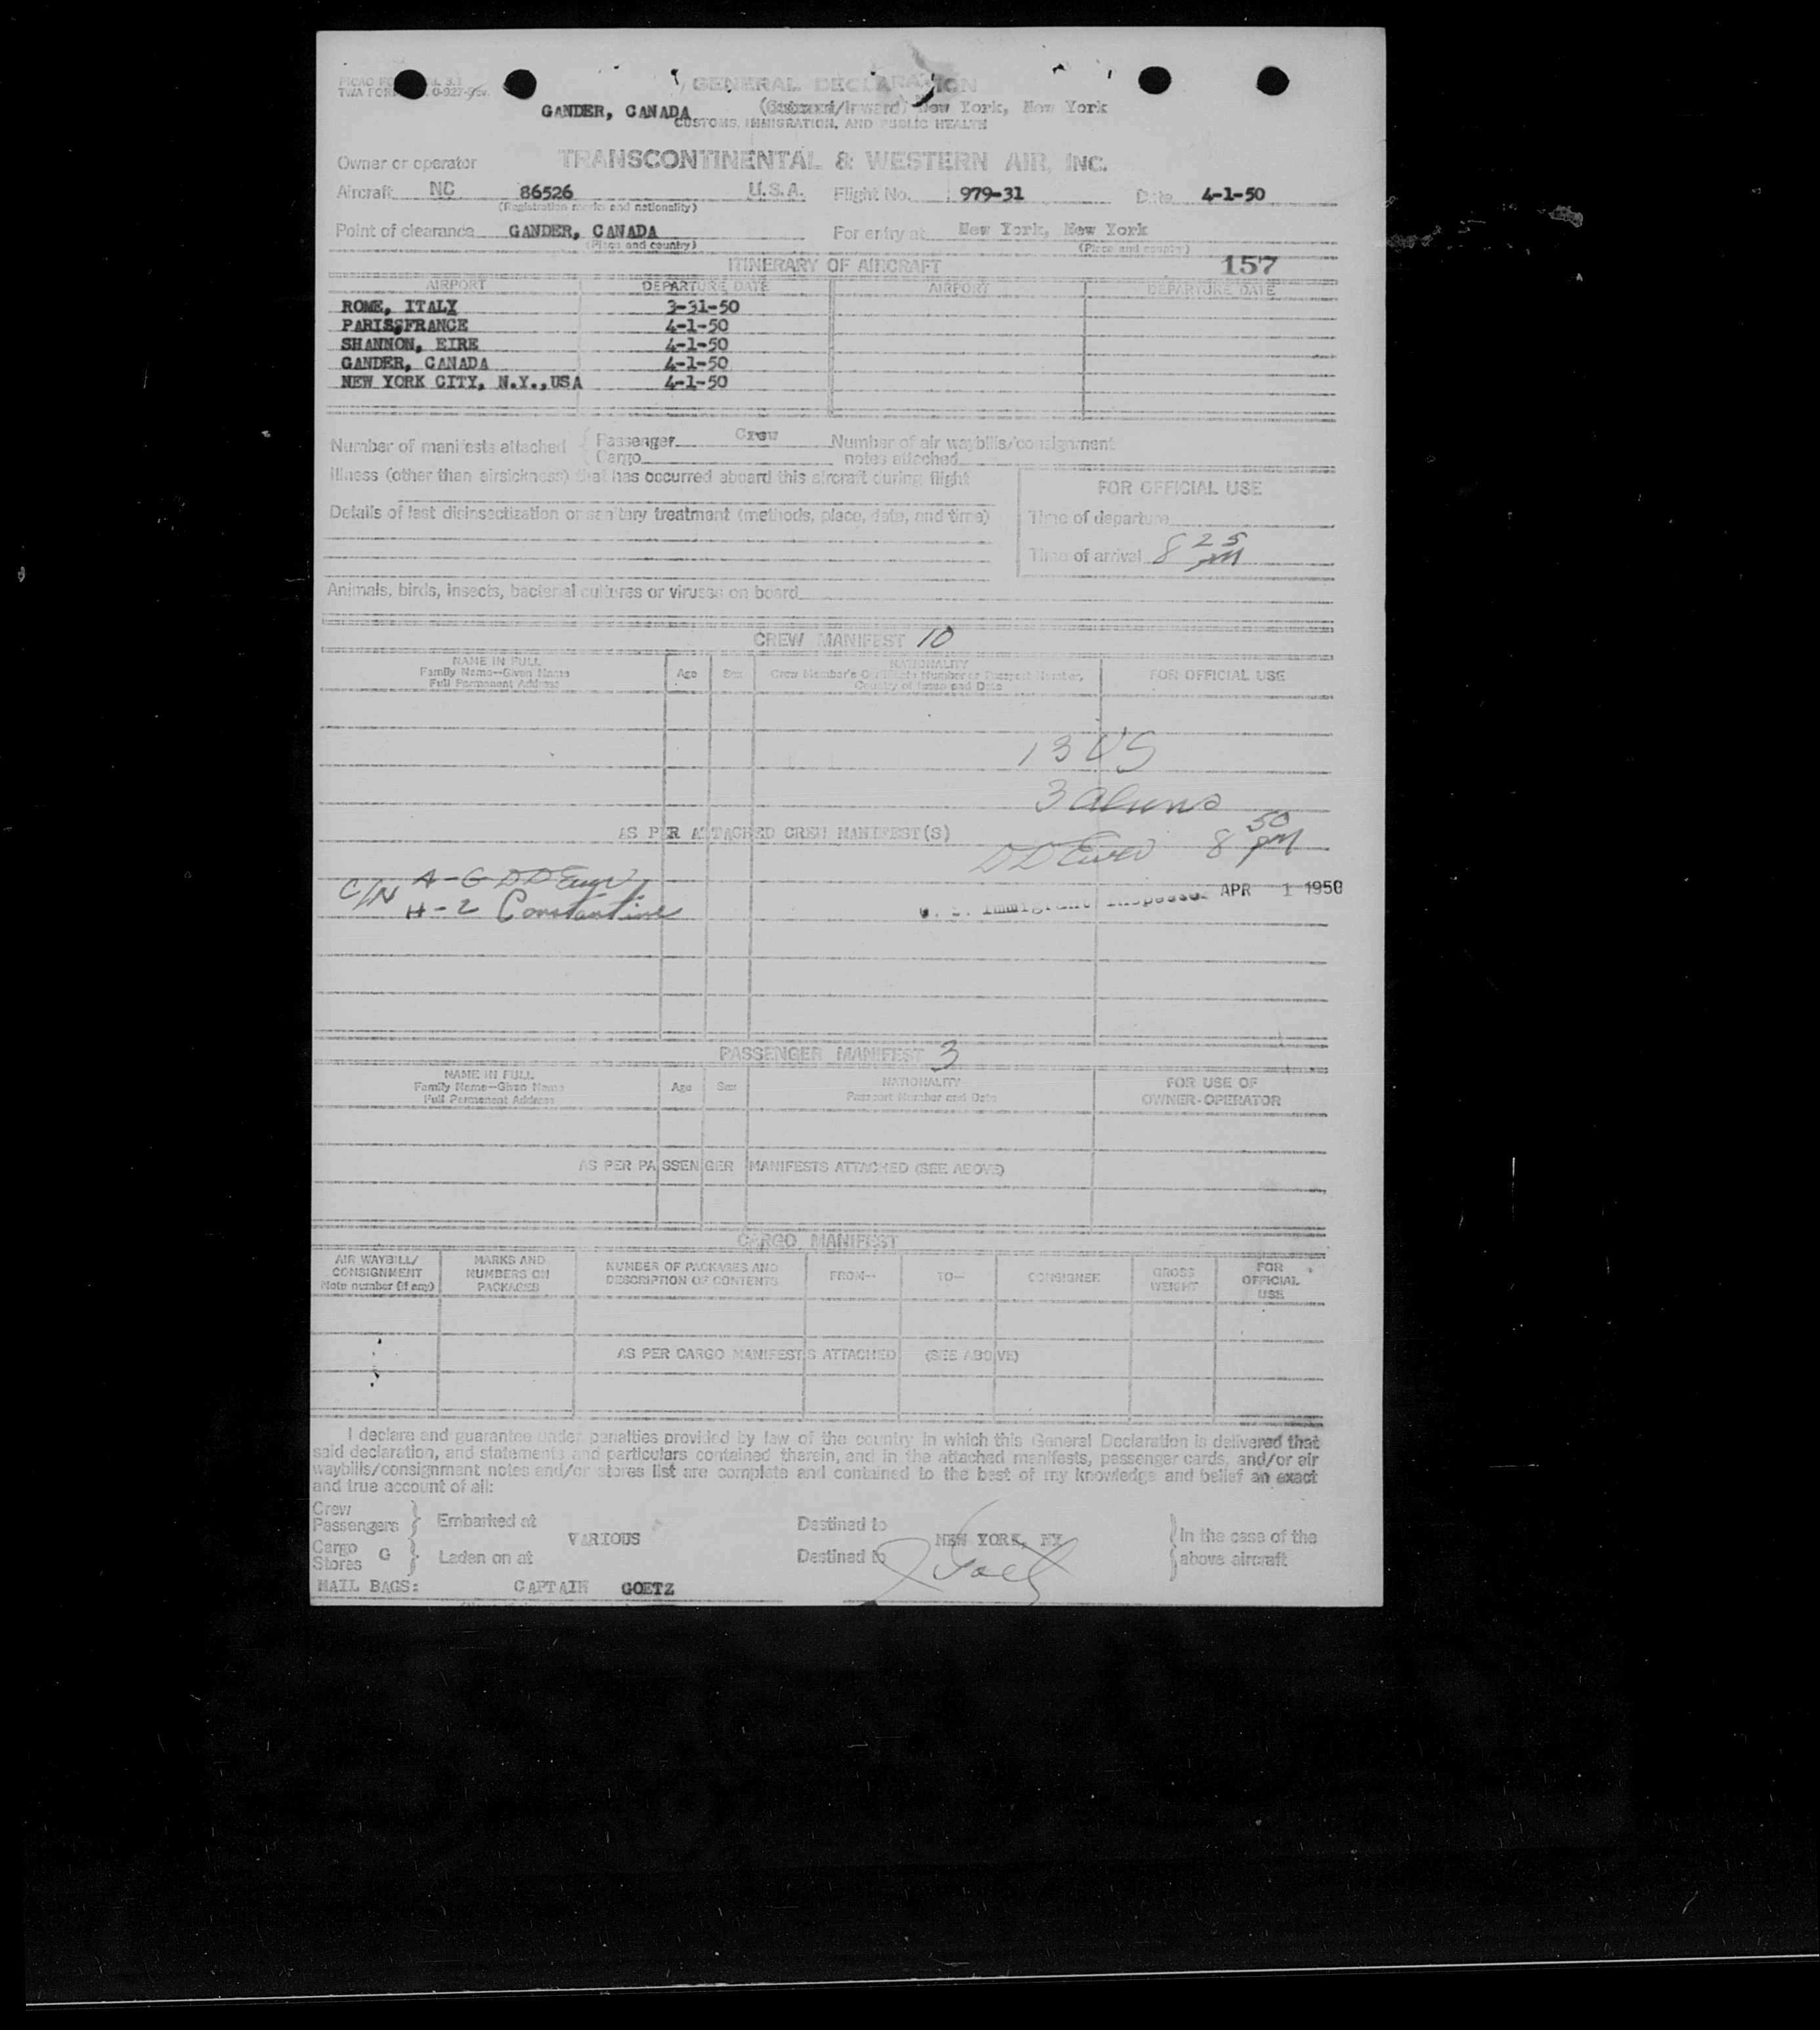 GENERAL DECLARATION
GANDER, CANADA (Outward/Inward) New York, New York
CUSTOMS, IMMIGRATION, AND PUBLIC HEALTH
Owner or operator TRANSCONTINENTAL & WESTERN AIR, INC.
Aircraft NC 86526 U.S.A. Flight No. 979-31 Date 4-1-50
(Registration marks and nationality)
Point of clearance GANDER, CANADA For entry at New York, New York
(Place and country) (Place and country)
ITINERARY OF AIRCRAFT 157
AIRPORT DEPARTURE DATE AIRPORT DEPARTURE DATE
ROME, ITALY 3-31-50
PARIS,FRANCE 4-1-50
SHANNON, EIRE 4-1-50
GANDER, CANADA 4-1-50
NEW YORK CITY, N.Y.,USA 4-1-50
Number of manifests attached { Passenger Crew Number of air waybills/consignment
Cargo notes attached
Illness (other than airsickness) that has occurred aboard this aircraft during flight
FOR OFFICIAL USE
Details of last disinsectization or sanitary treatment (methods, place, date, and time)
Time of departure
Time of arrival 8 25 PM
Animals, birds, insects, bacterial cultures or viruses on board
CREW MANIFEST 10
NAME IN FULL
Family Name—Given Name
Full Permanent Address
Age Sex
NATIONALITY
Crew Member's Certificate Number or Passport Number,
Country of Issue and Date
FOR OFFICIAL USE
13 US
3 aliens
AS PER ATTACHED CREW MANIFEST(S)
8 50 PM
C/N A-G
H-2 Constantine
U. S. Immigrant Inspector APR 1 1950
PASSENGER MANIFEST 3
NAME IN FULL
Family Name—Given Name
Full Permanent Address
Age Sex
NATIONALITY
Passport Number and Date
FOR USE OF
OWNER-OPERATOR
AS PER PASSENGER MANIFESTS ATTACHED (SEE ABOVE)
CARGO MANIFEST
AIR WAYBILL/
CONSIGNMENT
Note number (if any)
MARKS AND
NUMBERS ON
PACKAGES
NUMBER OF PACKAGES AND
DESCRIPTION OF CONTENTS
FROM— TO— CONSIGNEE
GROSS
WEIGHT
FOR
OFFICIAL
USE
AS PER CARGO MANIFESTS ATTACHED (SEE ABOVE)
I declare and guarantee under penalties provided by law of the country in which this General Declaration is delivered that
said declaration, and statements and particulars contained therein, and in the attached manifests, passenger cards, and/or air
waybills/consignment notes and/or stores list are complete and contained to the best of my knowledge and belief an exact
and true account of all:
Crew
Passengers } Embarked at VARIOUS Destined to NEW YORK, NY } In the case of the
Cargo
Stores G } Laden on at Destined to above aircraft
MAIL BAGS: CAPTAIN GOETZ